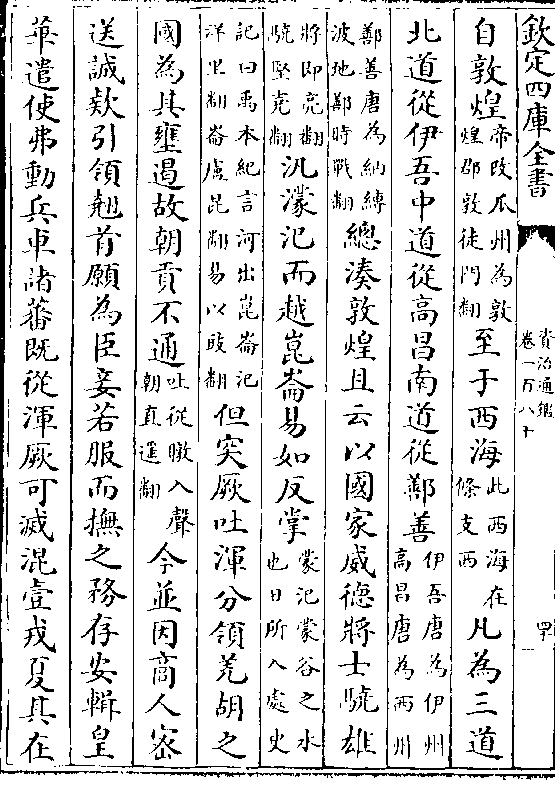 欽定四庫全書
資治通鑑
卷一百八十
罕
自敦煌帝改瓜州為敦煌郡敦徒門翻至于西海此西海在條支西凡為三道
北道從伊吾中道從高昌南道從鄯善伊吾唐為伊州高昌唐為西州
鄯善唐為納縛波地鄯時戰翻總湊敦煌且云以國家威德將士驍雄
將即亮翻驍堅堯翻汎濛汜而越崑崙易如反掌濛汜蒙谷之水也日所入處史
記曰禹本紀言河出崑崙汜詳里翻崙盧昆翻易以豉翻但突厥吐渾分領羌胡之
國為其壅遏故朝貢不通吐從暾入聲朝直遥翻今並因商人密
送誠欵引領翹首願為臣妾若服而撫之務存安輯皇
華遣使弗動兵車諸蕃既從渾厥可滅混壹戎夏其在